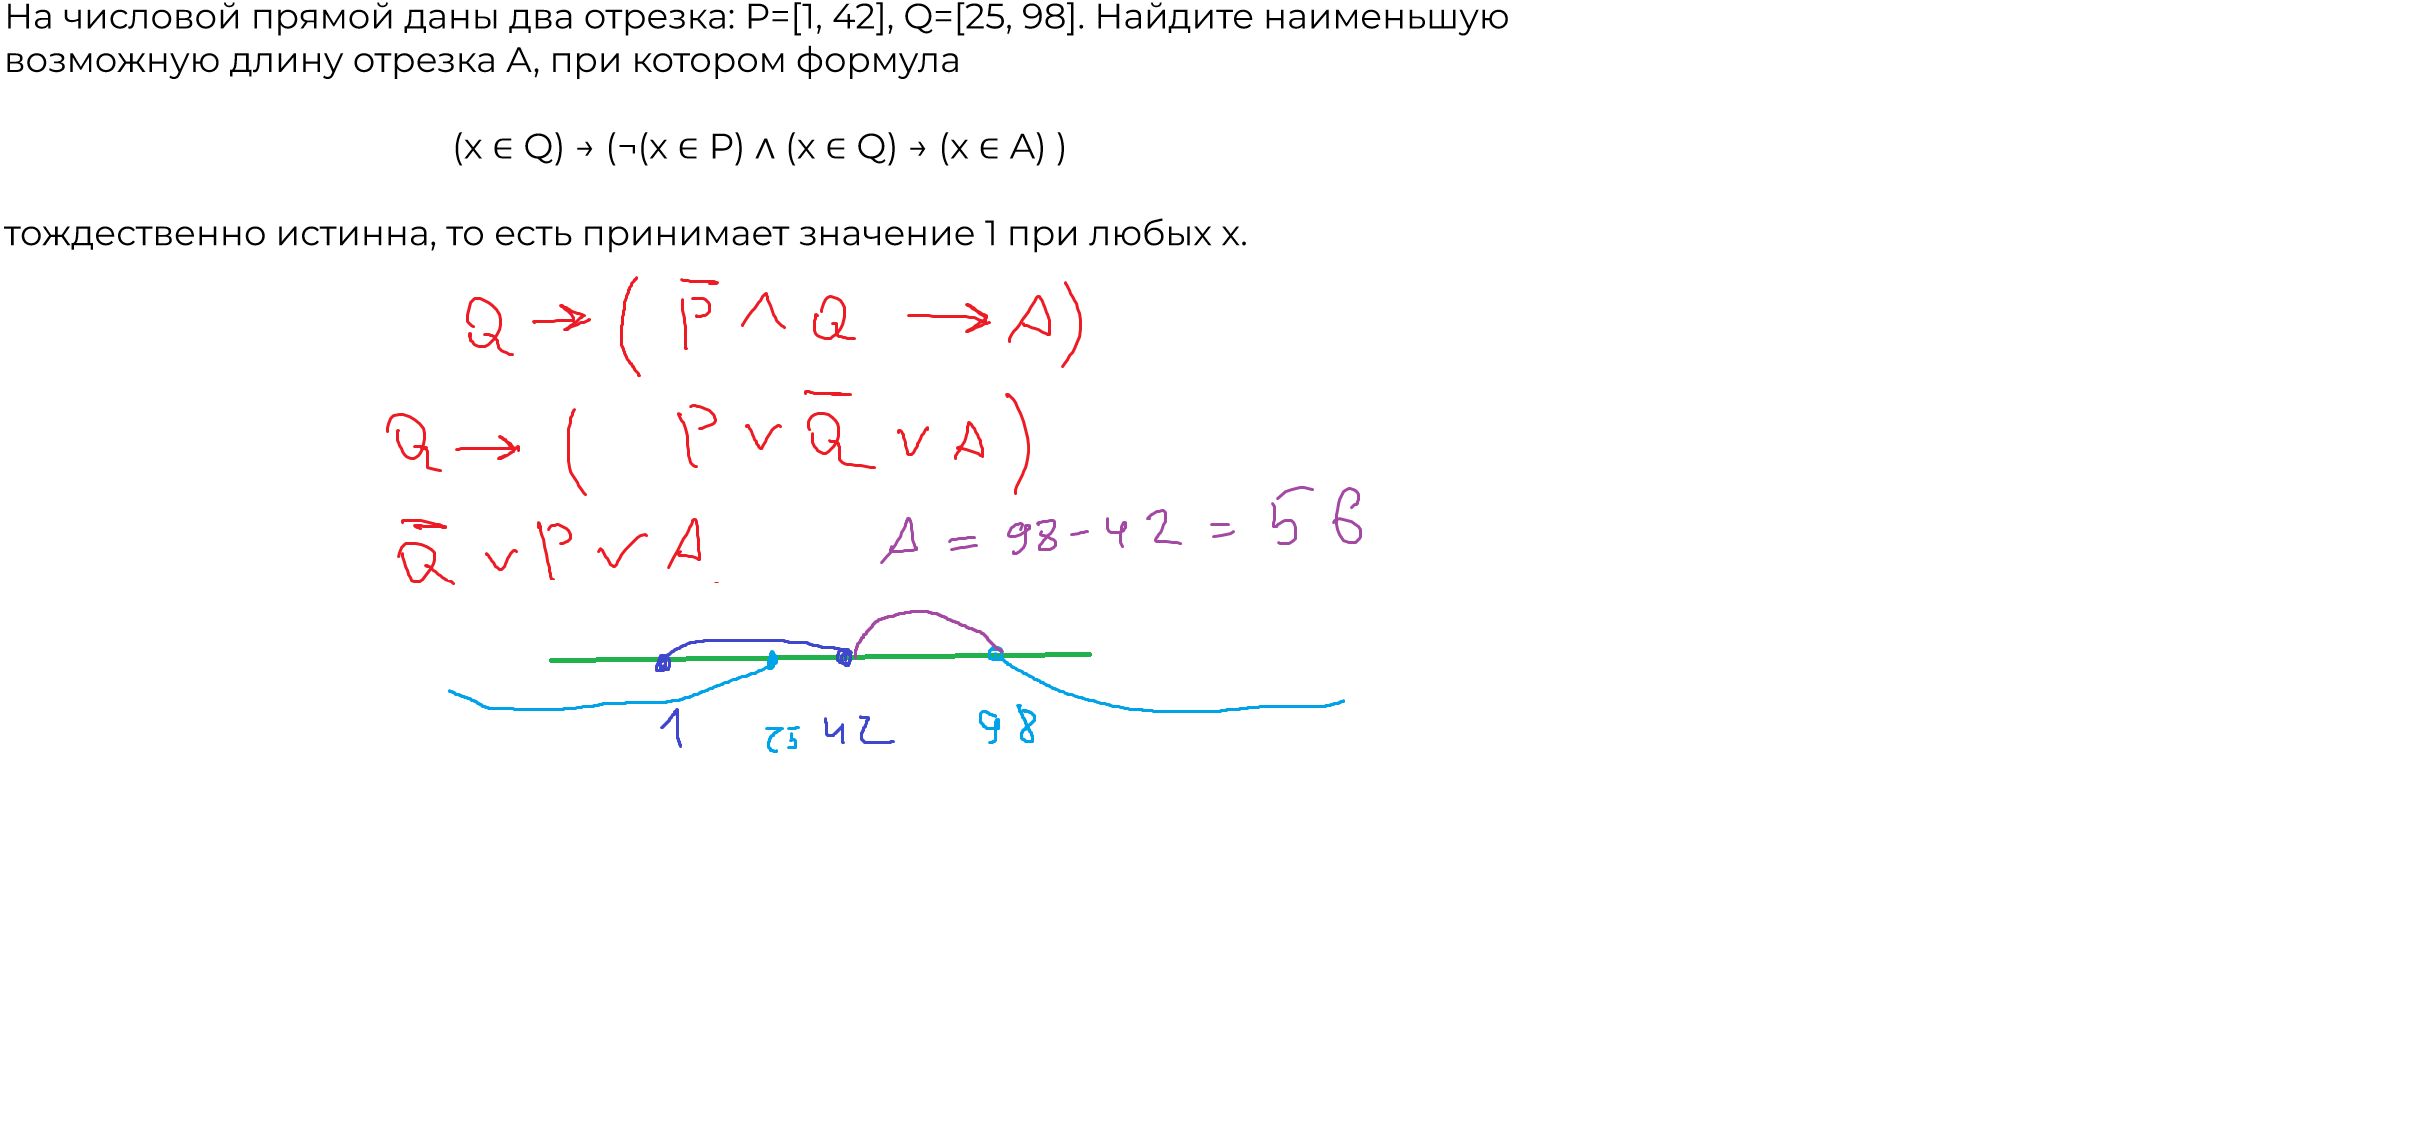 На числовой прямой даны два отрезка: P=[1, 42], Q=[25, 98]. Найдите наименьшую
возможную длину отрезка A, при котором формула
(x ∈ Q) → (¬(x ∈ P) ∧ (x ∈ Q) → (x ∈ A) )
тождественно истинна, то есть принимает значение 1 при любых x.
Q → ( P̅ ∧ Q → A )
Q → ( P ∨ Q̅ ∨ A )
Q̅ ∨ P ∨ A
A = 98 - 42 = 56
1 25 42 98